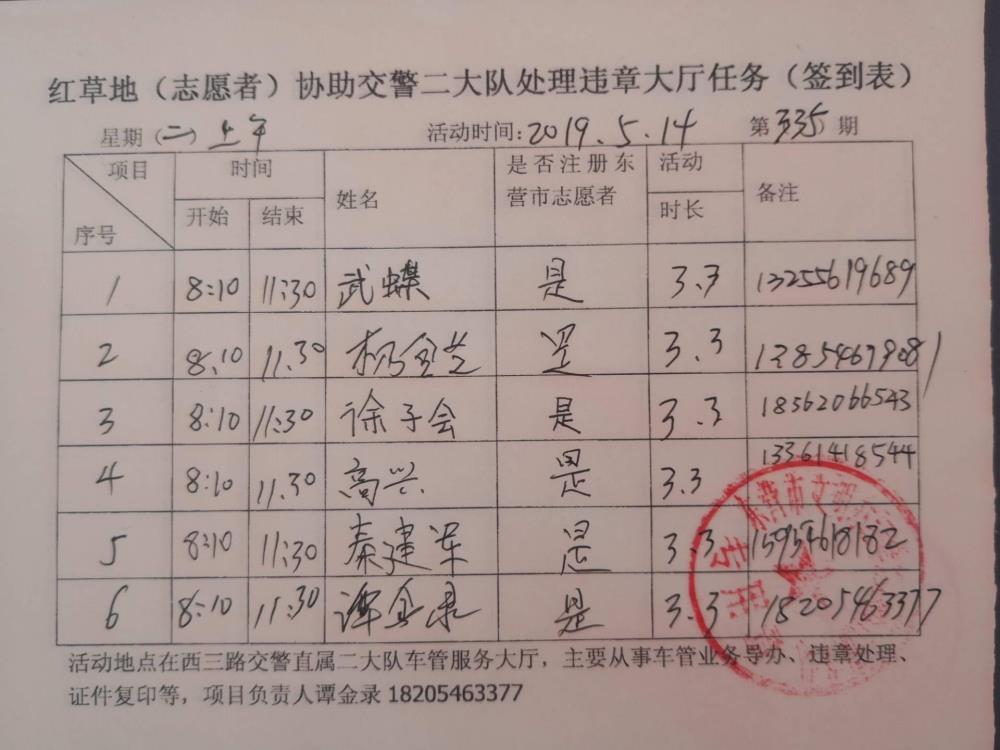 红草地（志愿者）协助交警二大队处理违章大厅任务（签到表）
星期（二）上午 活动时间：2019.5.14 第335期
项目 时间 姓名 是否注册东营市志愿者 活动时长 备注
序号 开始 结束
1 8:10 11:30 武蝶 是 3.3 13255619689
2 8:10 11:30 杨金芝 是 3.3 13854679081
3 8:10 11:30 徐子会 是 3.3 18562066543
4 8:10 11.30 高兴 是 3.3 13361418544
5 8:10 11:30 秦建军 是 3.3 15954618182
6 8:10 11:30 谭金录 是 3.3 18205463377
活动地点在西三路交警直属二大队车管服务大厅，主要从事车管业务导办、违章处理、
证件复印等，项目负责人谭金录 18205463377